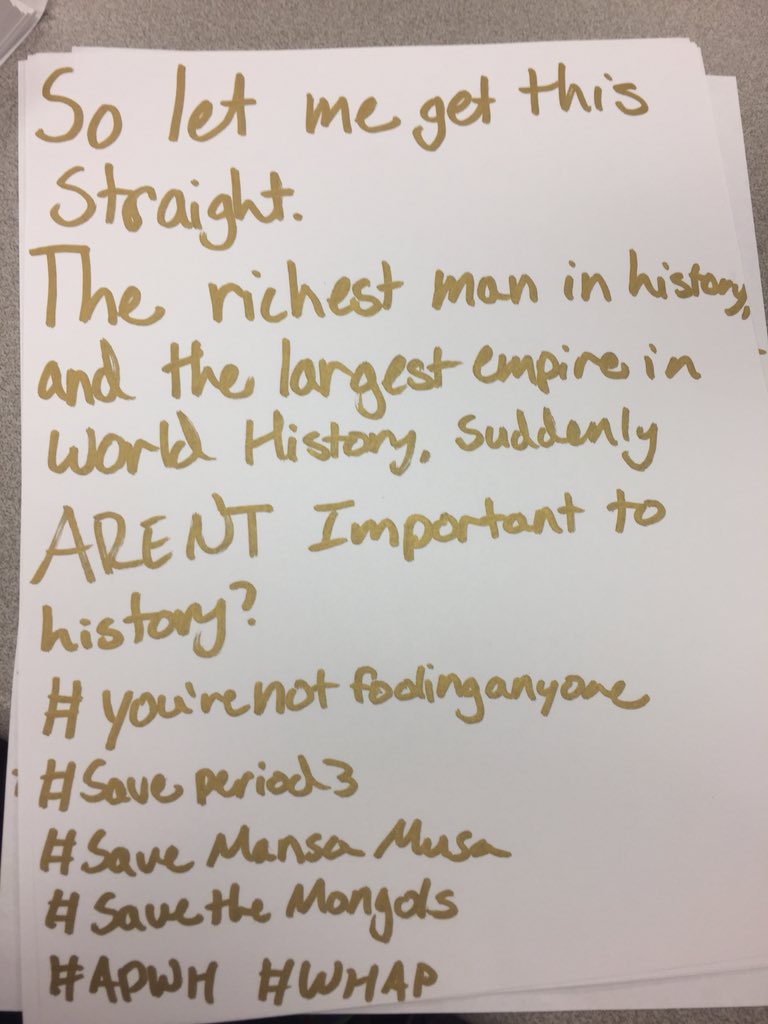 So let me get this
Straight.
The richest man in history,
and the largest empire in
World History. Suddenly
ARENT Important to
history?
#you're not foolinganyone
#Save period3
#Save Mansa Musa
#Save the Mongols
#APWH #WHAP